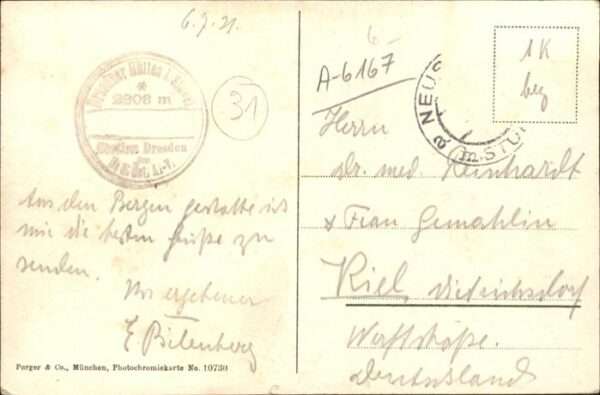 6.7.31.
Dresdner Hütte i. Stubai
2308 m
Sektion Dresden
des
D. u. Oest. A.-V.
31
Aus den Bergen gestatte ich
mir die besten Grüße zu
senden.
Ihr ergebener
E. Bilenberg
Perger & Co., München, Photochromiekarte No. 10730
A-6167
1 K
beg
NEUS
STU
Herrn
Dr. med. Reinhardt
& Frau Gemahlin
Kiel Dietrichsdorf
Werftstraße.
Deutschland